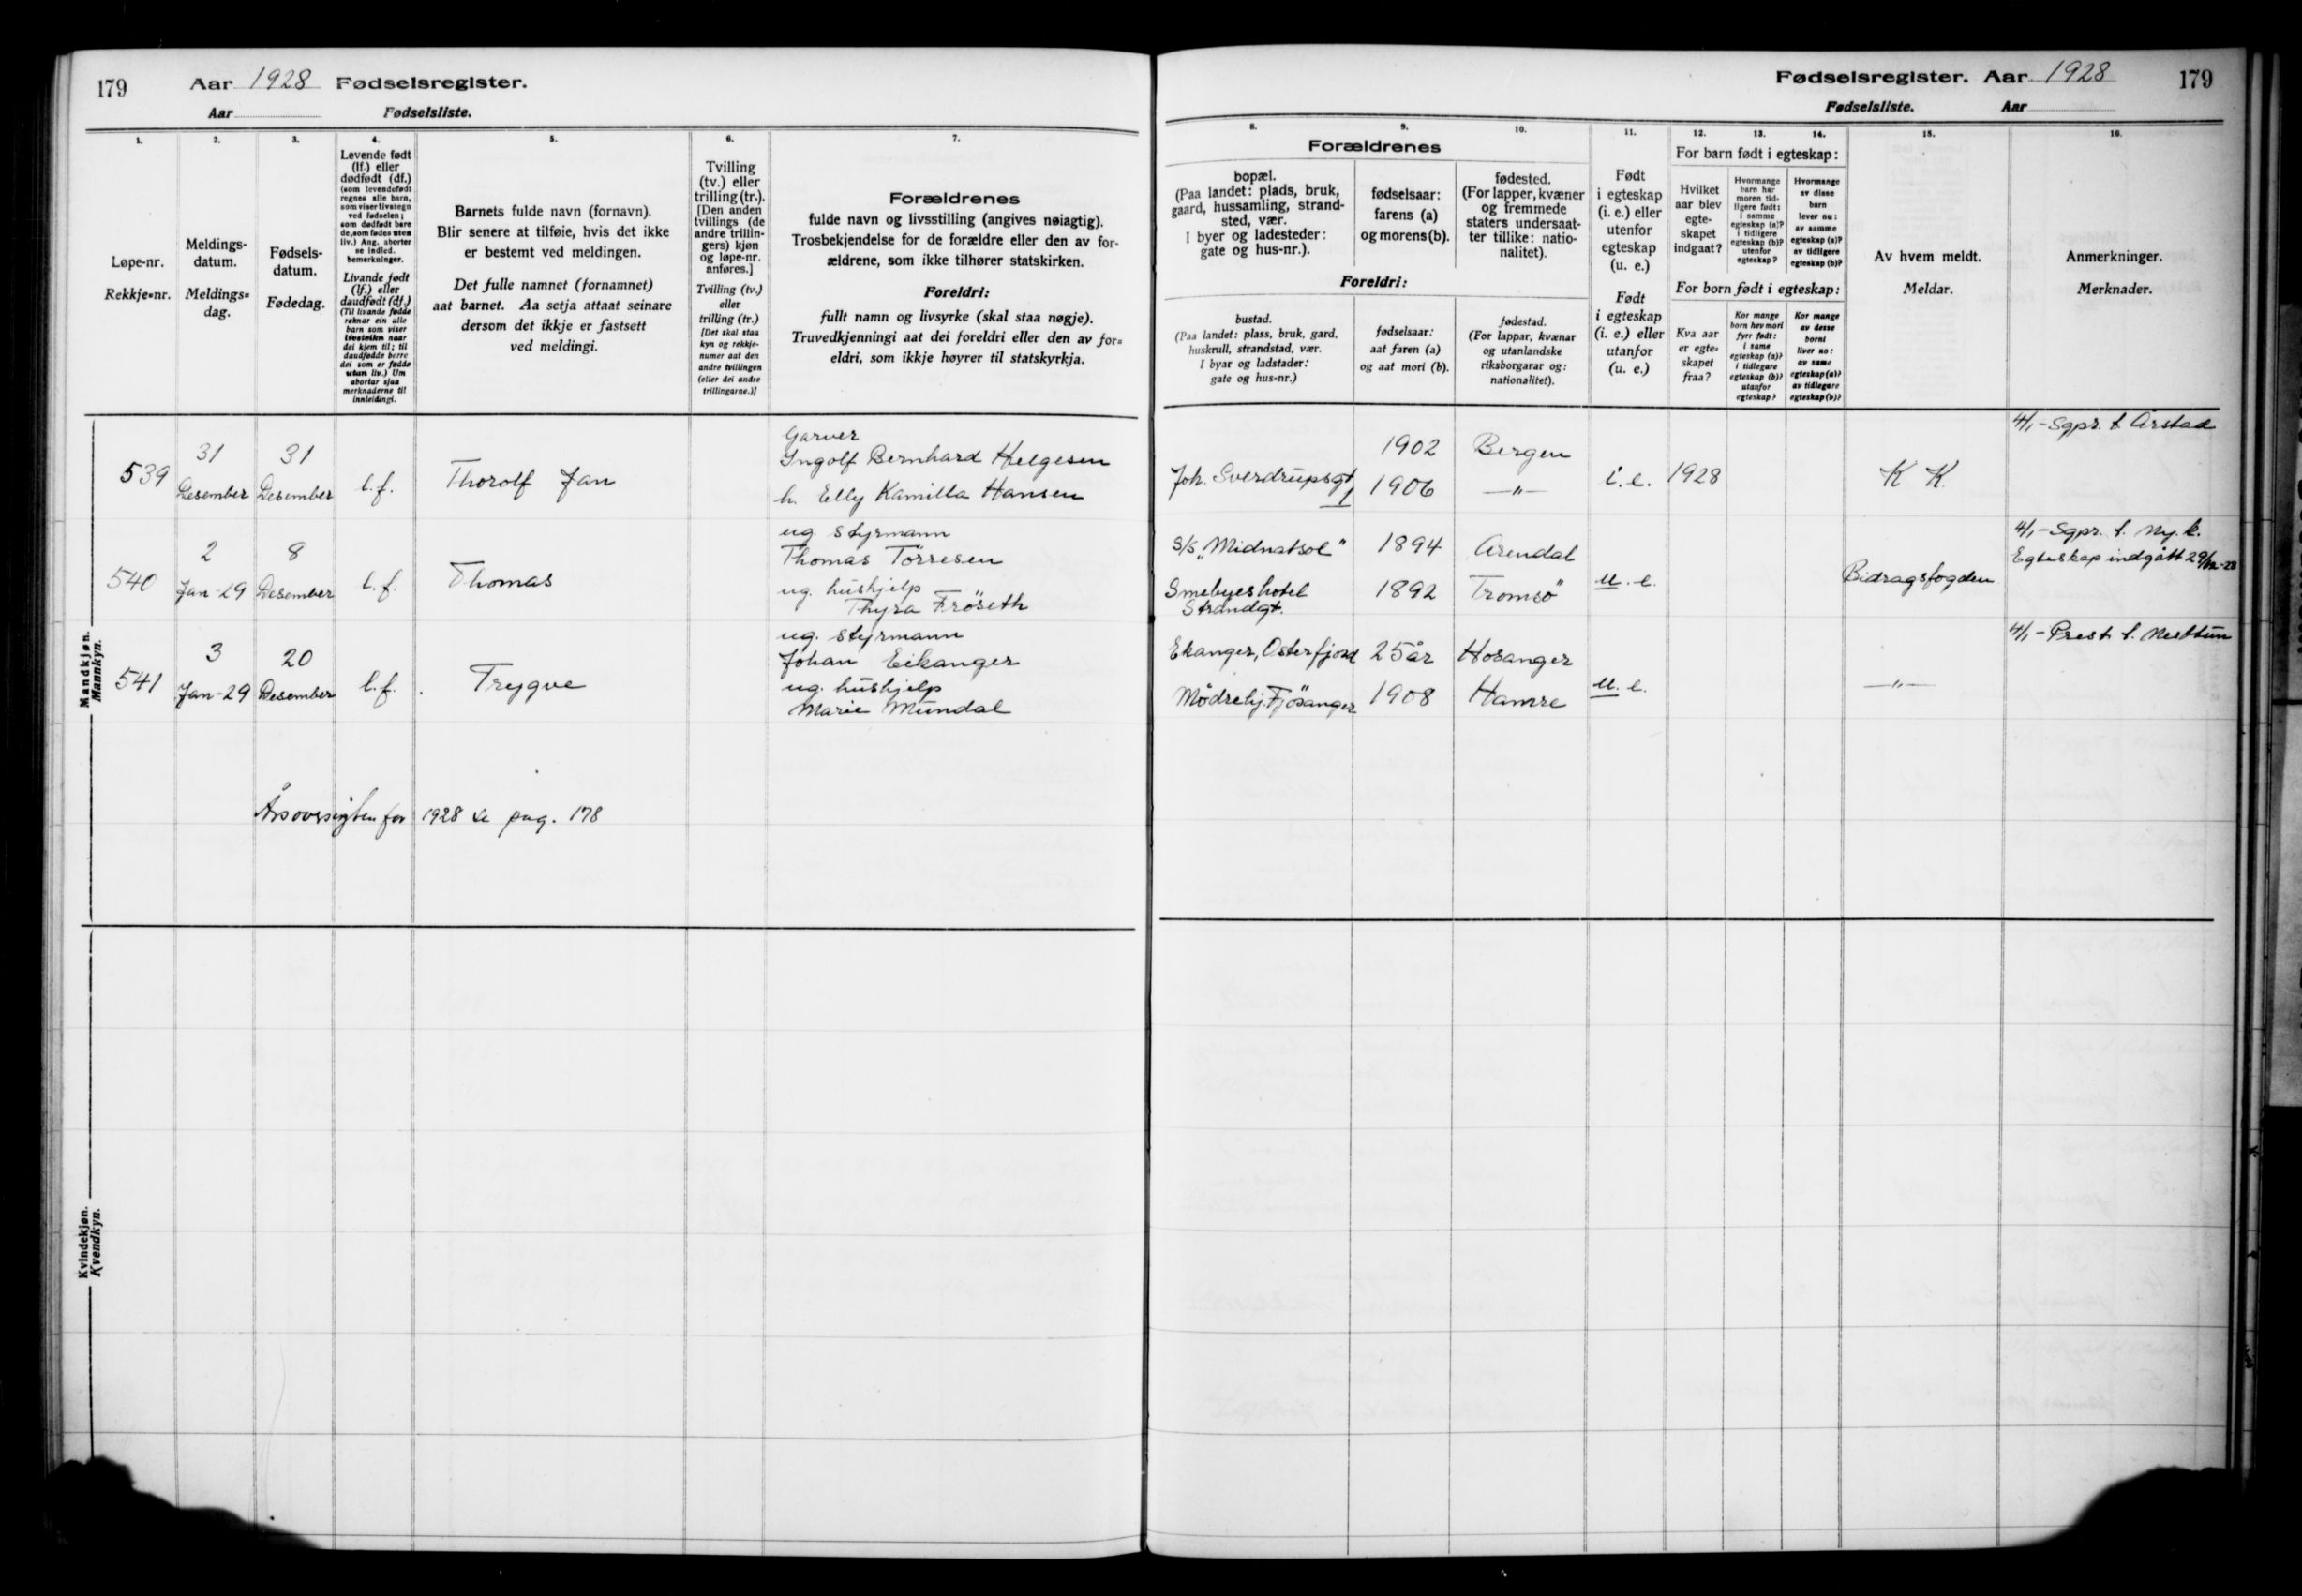 179 Aar 1928 Fødselsregister.
Aar Fødselsliste.
1. 2. 3. 4. 5. 6. 7.
Løpe-nr.
Rekkje-nr.
Meldings-
datum.
Meldings-
dag.
Fødsels-
datum.
Fødedag.
Levende født
(lf.) eller
dødfødt (df.)
(som levendefødt
regnes alle barn,
som viser livstegn
ved fødselen;
som dødfødt bare
de, som fødes uten
liv.) Ang. aborter
se indled.
bemerkninger.
Livande født
(lf.) eller
daudfødt (df.)
(Til livande fødde
reknar ein alle
barn som viser
livsteikn naar
dei kjem til; til
daudfødde berre
dei som er fødde
utan liv.) Um
abortar sjaa
merknaderne til
innleidingi.
Barnets fulde navn (fornavn).
Blir senere at tilføie, hvis det ikke
er bestemt ved meldingen.
Det fulle namnet (fornamnet)
aat barnet. Aa setja attaat seinare
dersom det ikkje er fastsett
ved meldingi.
Tvilling
(tv.) eller
trilling (tr.).
[Den anden
tvillings (de
andre trillin-
gers) kjøn
og løpe-nr.
anføres.]
Tvilling (tv.)
eller
trilling (tr.)
[Det skal staa
kyn og rekkje-
numer aat den
andre tvillingen
(eller dei andre
trillingarne.)]
Forældrenes
fulde navn og livsstilling (angives nøiagtig).
Trosbekjendelse for de forældre eller den av for-
ældrene, som ikke tilhører statskirken.
Foreldri:
fullt namn og livsyrke (skal staa nøgje).
Truvedkjenningi aat dei foreldri eller den av for-
eldri, som ikkje høyrer til statskyrkja.
Mandkjøn.
Mannkyn.
539 31 Desember 31 Desember l.f. Thorolf Jan
Garver
Ingolf Bernhard Helgesen
h. Elly Kamilla Hansen
540 2 Jan-29 8 Desember l.f. Thomas
ug. styrmann
Thomas Törresen
ug. hushjelp
Thyra Fröseth
541 3 Jan-29 20 Desember l.f. Trygve
ug. styrmann
Johan Eikanger
ug. hushjelp
Marie Mundal
Årsoversigten for 1928 se pag. 178
Kvindekjøn.
Kvendkyn.
Fødselsregister. Aar 1928 179
Fødselsliste. Aar
8. 9. 10. 11. 12. 13. 14. 15. 16.
Forældrenes
bopæl.
(Paa landet: plads, bruk,
gaard, hussamling, strand-
sted, vær.
I byer og ladesteder:
gate og hus-nr.).
fødselsaar:
farens (a)
og morens (b).
fødested.
(For lapper, kvæner
og fremmede
staters undersaat-
ter tillike: natio-
nalitet).
Foreldri:
bustad.
(Paa landet: plass, bruk, gard,
huskrull, strandstad, vær.
I byar og ladstader:
gate og hus-nr.)
fødselsaar:
aat faren (a)
og aat mori (b).
fødestad.
(For lappar, kvænar
og utanlandske
riksborgarar og:
nationalitet).
Født
i egteskap
(i. e.) eller
utenfor
egteskap
(u. e.)
Født
i egteskap
(i. e.) eller
utanfor
(u. e.)
For barn født i egteskap:
Hvilket
aar blev
egte-
skapet
indgaat?
Hvormange
barn har
moren tid-
ligere født:
i samme
egteskap (a)?
i tidligere
egteskap (b)?
utenfor
egteskap?
Hvormange
av disse
barn
lever nu:
av samme
egteskap (a)?
av tidligere
egteskap (b)?
For born født i egteskap:
Kva aar
er egte-
skapet
fraa?
Kor mange
born hev mori
fyrr født:
i same
egteskap (a)?
i tidlegare
egteskap (b)?
utanfor
egteskap?
Kor mange
av desse
borni
liver no:
av same
egteskap (a)?
av tidlegare
egteskap (b)?
Av hvem meldt.
Meldar.
Anmerkninger.
Merknader.
Joh. Sverdrupsgt 1
1902 Bergen
1906 -"-
i.e. 1928 K K.
4/1 - Sgpr. t. Årstad
S/S „Midnatsol" 1894 Arendal
Smebyeshotel
Strandgt.
1892 Tromsö
u.e. Bidragsfogden
4/1 - Sgpr. t. Ny.k.
Egteskap indgått 29/12-28
Ekanger, Osterfjord 25 år Hosanger
Mødrehj. Fjösanger 1908 Hamre
u.e. -"-
4/1 - Prest t. Nesttun